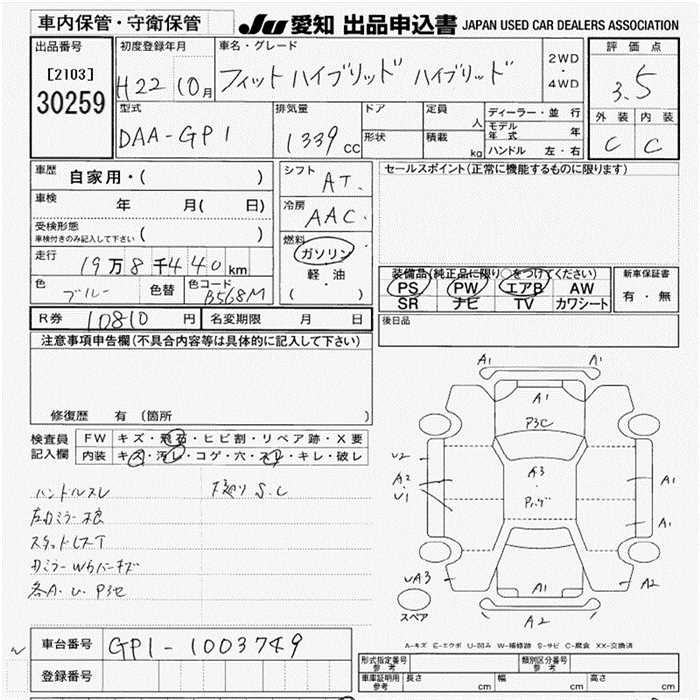 車内保管・守衛保管 JU 愛知 出品申込書 JAPAN USED CAR DEALERS ASSOCIATION
出品番号 初度登録年月 車名・グレード 2WD・4WD 評価点
[2103] 30259 H22 10月 フィットハイブリッド ハイブリッド 3.5
型式 排気量 ドア 定員 人 ディーラー・並行 外装 内装
DAA-GP1 1339cc 形状 積載 kg モデル年式 年 C C
ハンドル 左・右
車歴 自家用・( ) シフト AT. セールスポイント(正常に機能するものに限ります)
車検 年 月( 日) 冷房 AAC.
受検形態 車検付きのみ記入して下さい ( )
燃料 ガソリン 軽油 ( )
走行 19万8千440km
装備品(純正品に限り○をつけてください) 新車保証書
色 ブルー 色替 色コード B568M PS PW エアB AW 有・無
SR ナビ TV カワシート
R券 10810円 名変期限 月 日 後日品
注意事項申告欄(不具合内容等は具体的に記入して下さい)
修復歴 有 (箇所 )
検査員記入欄 FW キズ・飛石・ヒビ割・リペア跡・X要
内装 キズ・汚レ・コゲ・穴・スレ・キレ・破レ
ハンドルスレ S.C
スタッドレスT
各A.U.P3セ
A1 A1
A1
P3C
U2
A2
U1
A3
A1
A1
UA3
A1
A2
スペア
A2
A-キズ E-エクボ U-凹み W-補修跡 S-サビ C-腐食 XX-交換済
車台番号 GP1-1003749
登録番号
形式指定番号 参考 類別区分番号 参考
車庫証明用 参考 長さ cm 幅 cm 高さ cm